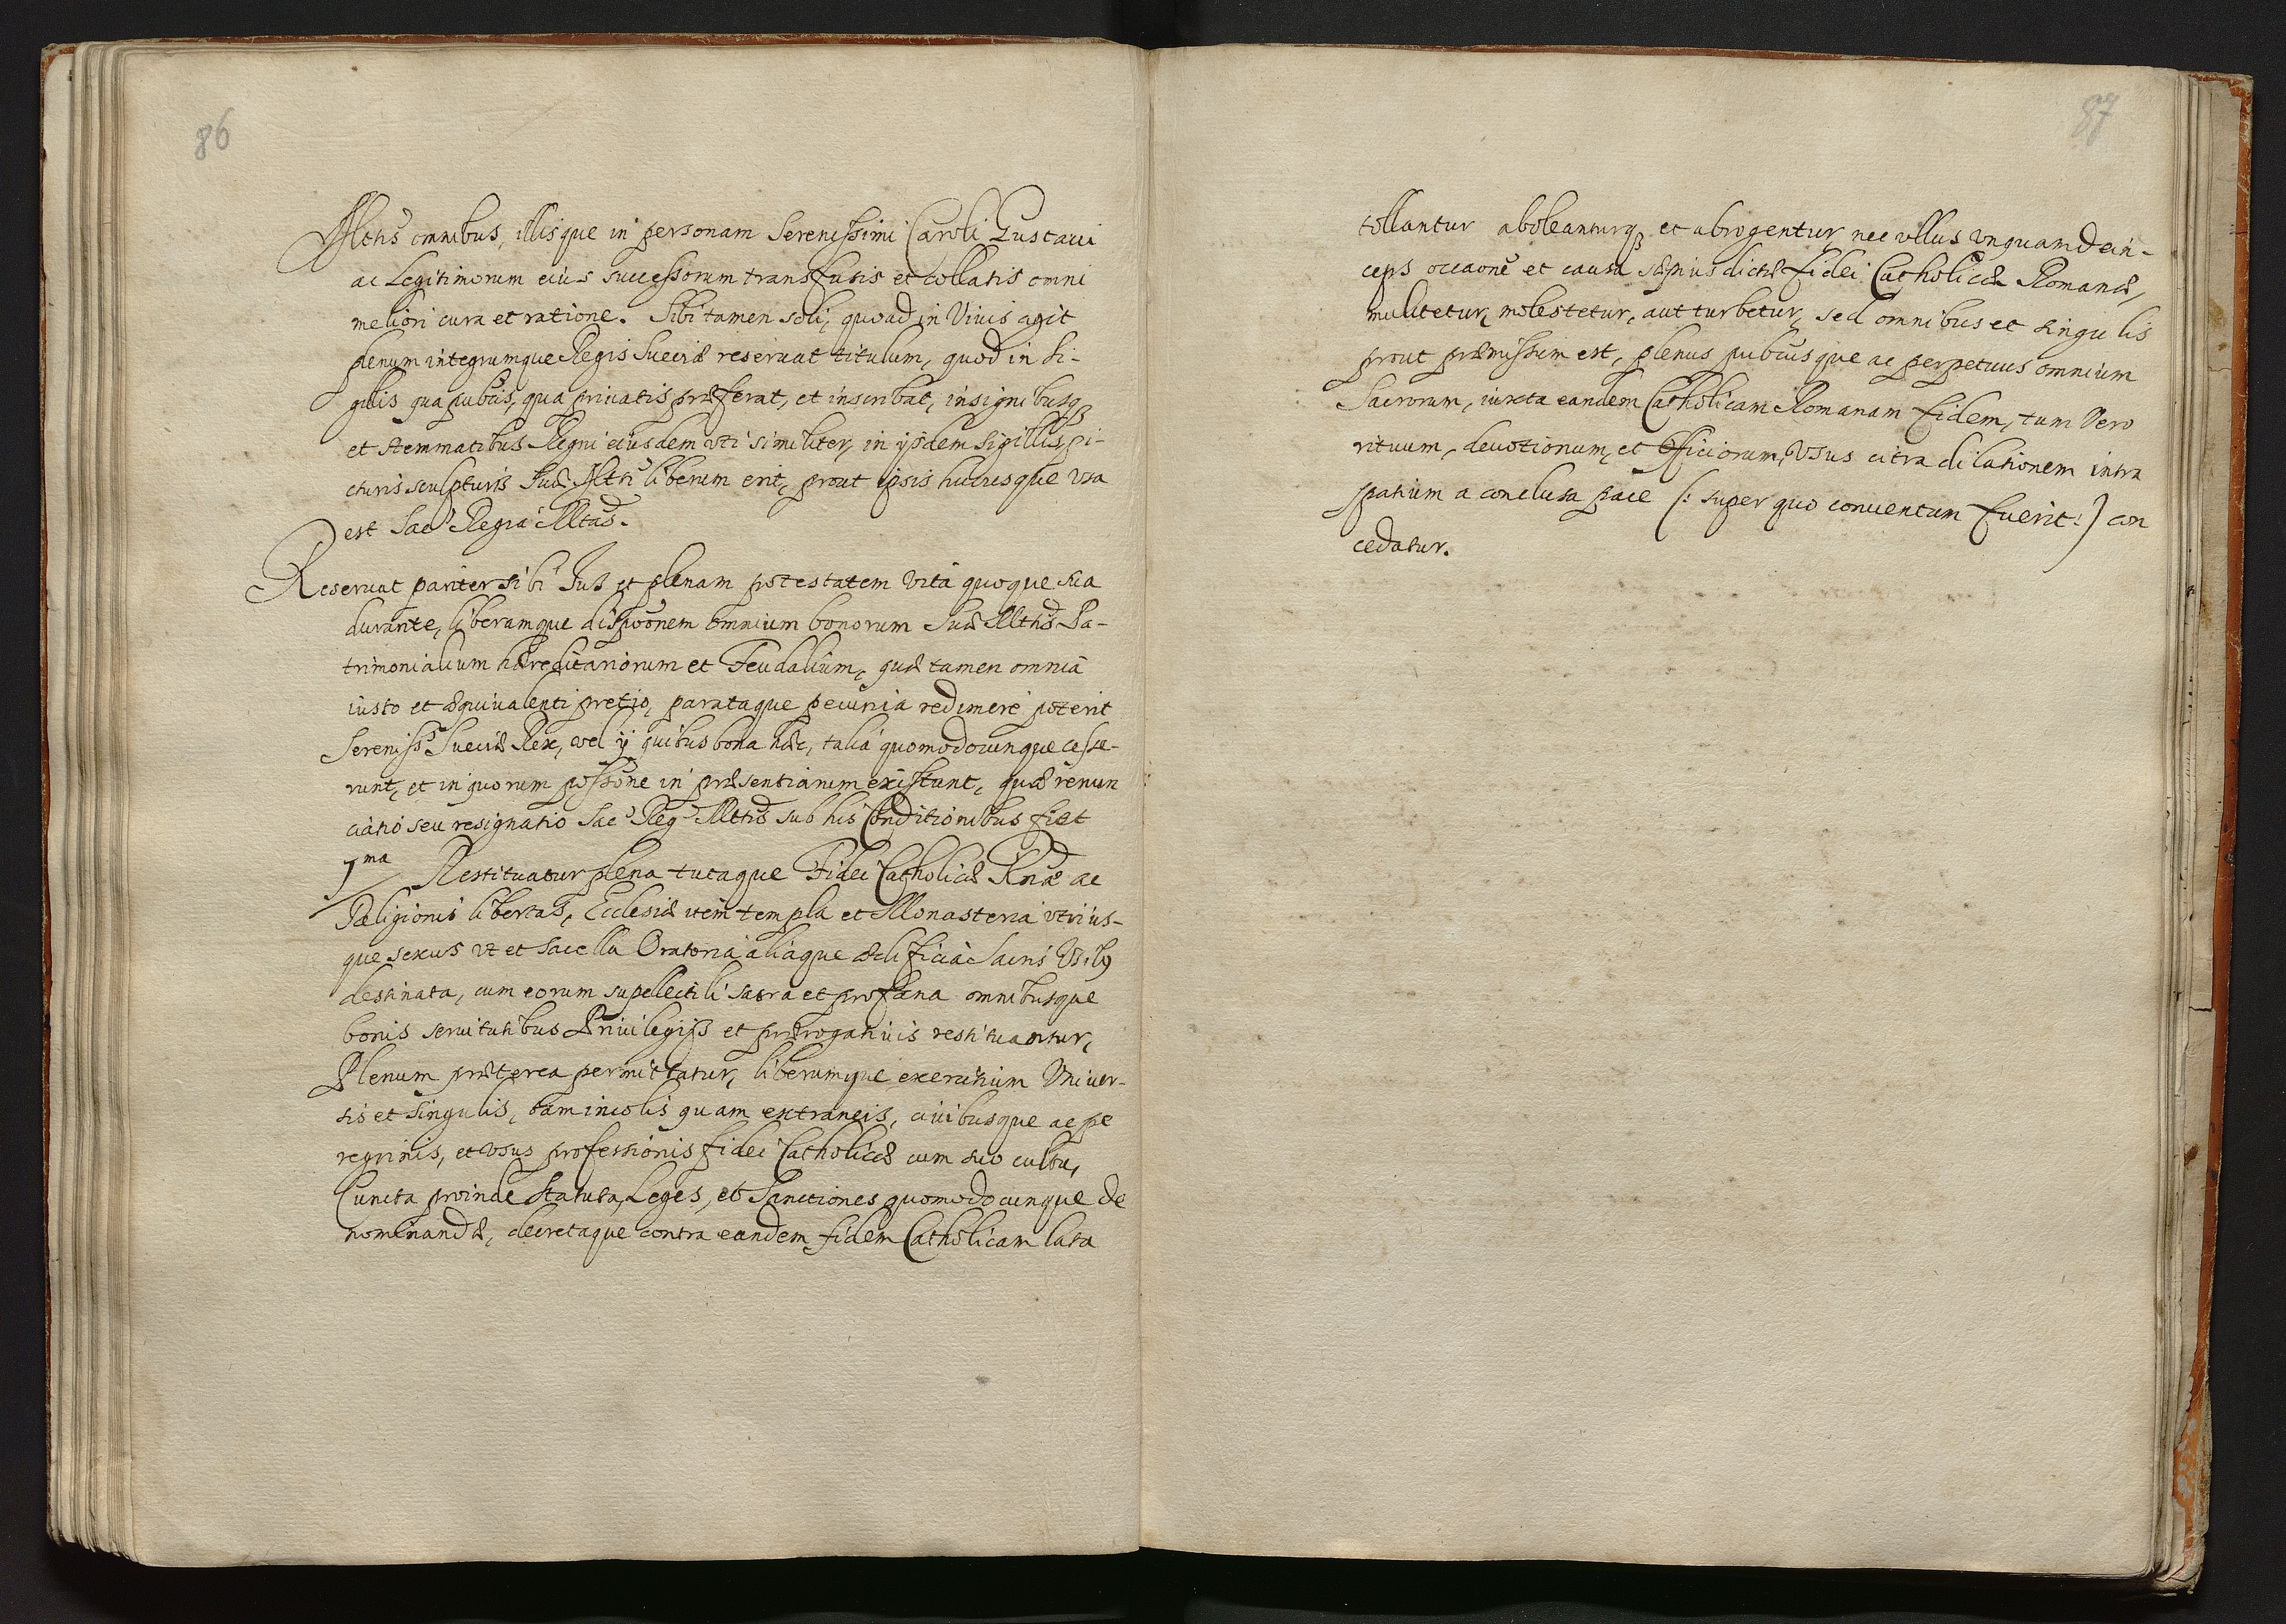 86
Mttis omnibus, illisque in personam Serenissimi Caroli Gustaui
ac Legitimorum eius successorum transfusis et collatis omni
meliori cura et ratione. Sibi tamen soli, quoad in Viuis agit
plenum integrumque Regis Sueciæ reseruat titulum, quod in Si-
gillis qua pubcis, qua priuatis præferat, et inscribat, insignibusq
et stemmatibus Regni eiusdem vti similiter, in ysdem Sigillis pi-
cturis sculpturis Suæ Mtti liberum erit, prout ipsis hucusque vsa
est Sac Regia Mttas.
Reseruat pariter sibi Jus et plenam potestatem vita quoque sua
durante, liberamque dispoonem omnium bonorum Suæ Mttis Pa-
trimonialium hæreditariorum et Feudalium, quæ tamen omnia
iusto et æquiualenti pretio, parataque pecunia redimere poterit
Sereniss Sueciæ Rex, vel ij quibus bona hæc, talia quomodocunque cesse-
runt, et in quorum possone in præsentiarum existunt, quæ renun
ciatio seu resignatio Sac Reg Mttis sub his Conditionibus fiet
1ma Restituatur plena tutaque Fidei Catholicæ Rnæ ac
Religionis libertas, Ecclesiæ item templa et Monasteria vtrius-
que sexus vt et Sacella Oratoria aliaque ædificia Sacris Vsib9
destinata, cum eorum supellectili sacra et profana omnibusque
bonis seruitutibus Priuilegijs et prærogatiuis restituantur,
Plenum præterea permittatur, liberumque exercitium Vniuer-
sis et singulis, tam incolis quam extraneis, ciuibusque ac pe
regrinis, et vsus professionis fidei Catholicæ cum suo cultu,
Cuncta proinde Statuta, Leges, et Sanctiones quomodocunque de
nominandæ, decretaque contra eandem fidem Catholicam lata
87
tollantur aboleanturq et abrogentur, nec vllus vnquam dein-
ceps occaone et causa sæpius dictæ fidei Catholicæ Romanæ,
mulctetur, molestetur, aut turbetur, sed omnibus et singulis
prout præmissum est, plenus pubcusque ac perpetuus omnium
Sacrorum, iuxta eandem Catholicam Romanam fidem, tum Vero
rituum, deuotionum, et Officiorum, Vsus citra dilationem intra
spatium a conclusa pace (: super quo conuentum fuerit :) con
cedatur.